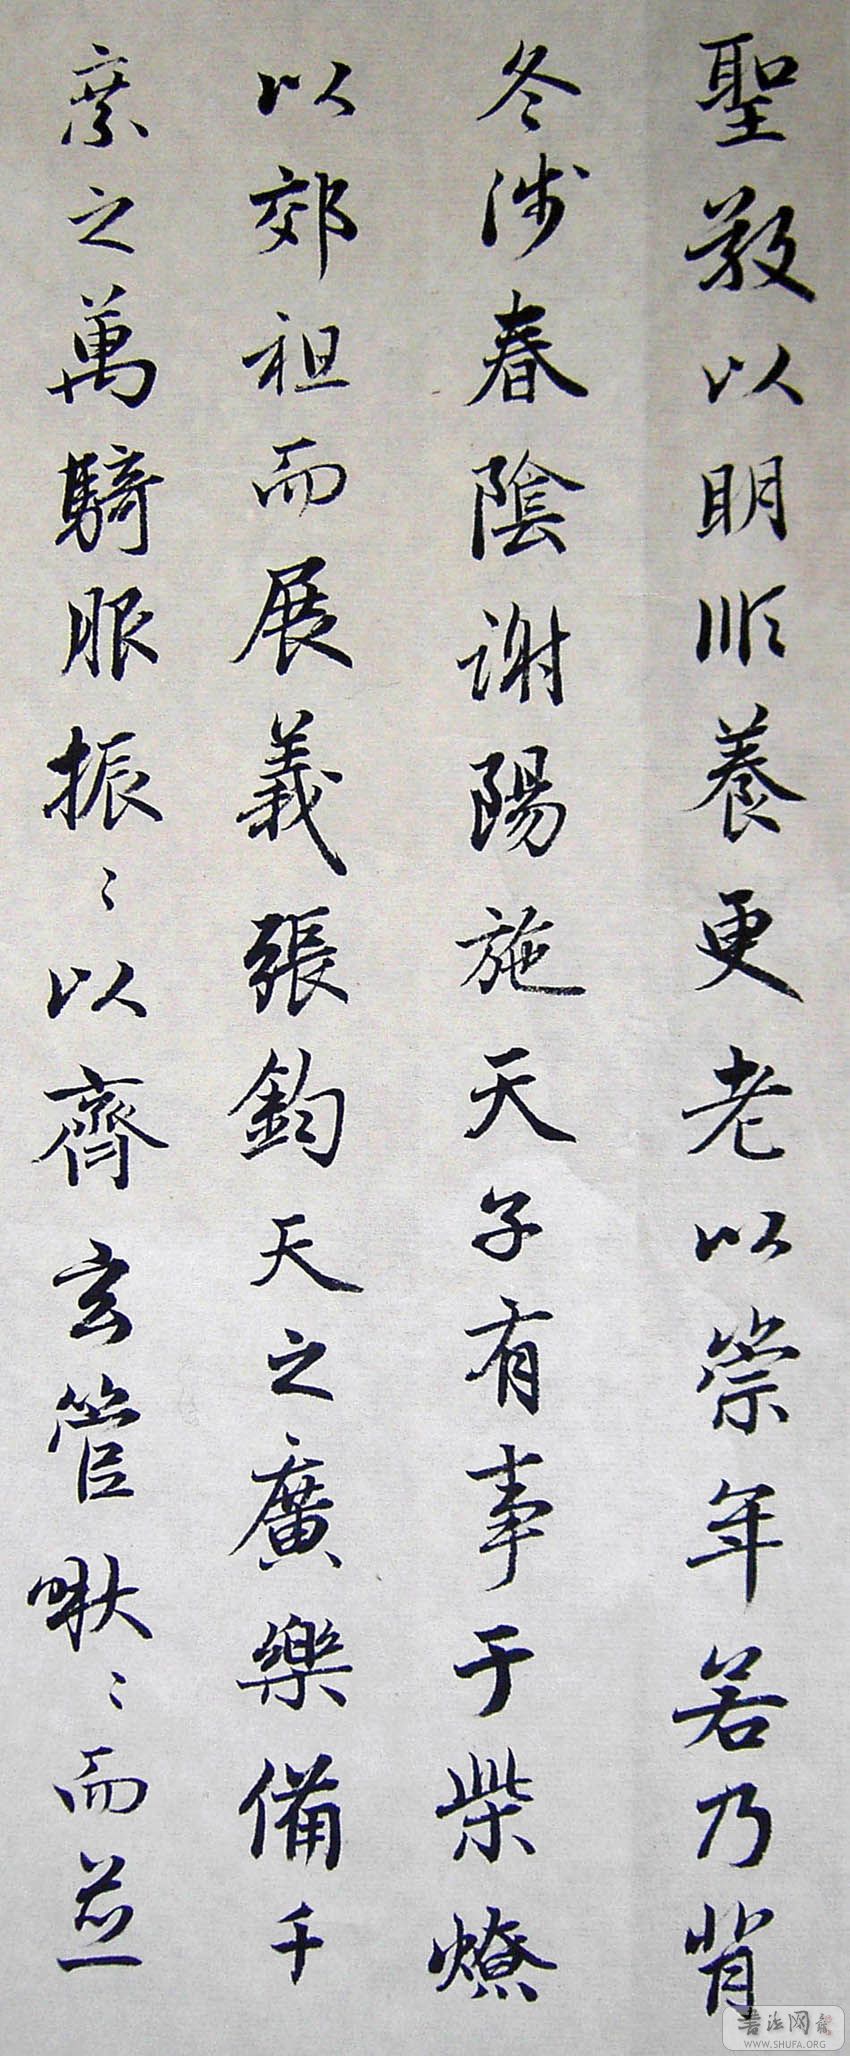 聖敬以明順養更老以崇年若乃背
冬涉春陰謝陽施天子有事于柴燎
以郊祖而展義張鈞天之廣樂備千
乘之萬騎服振〻以齊玄管啾〻而並
書法网
WWW.SHUFA.ORG